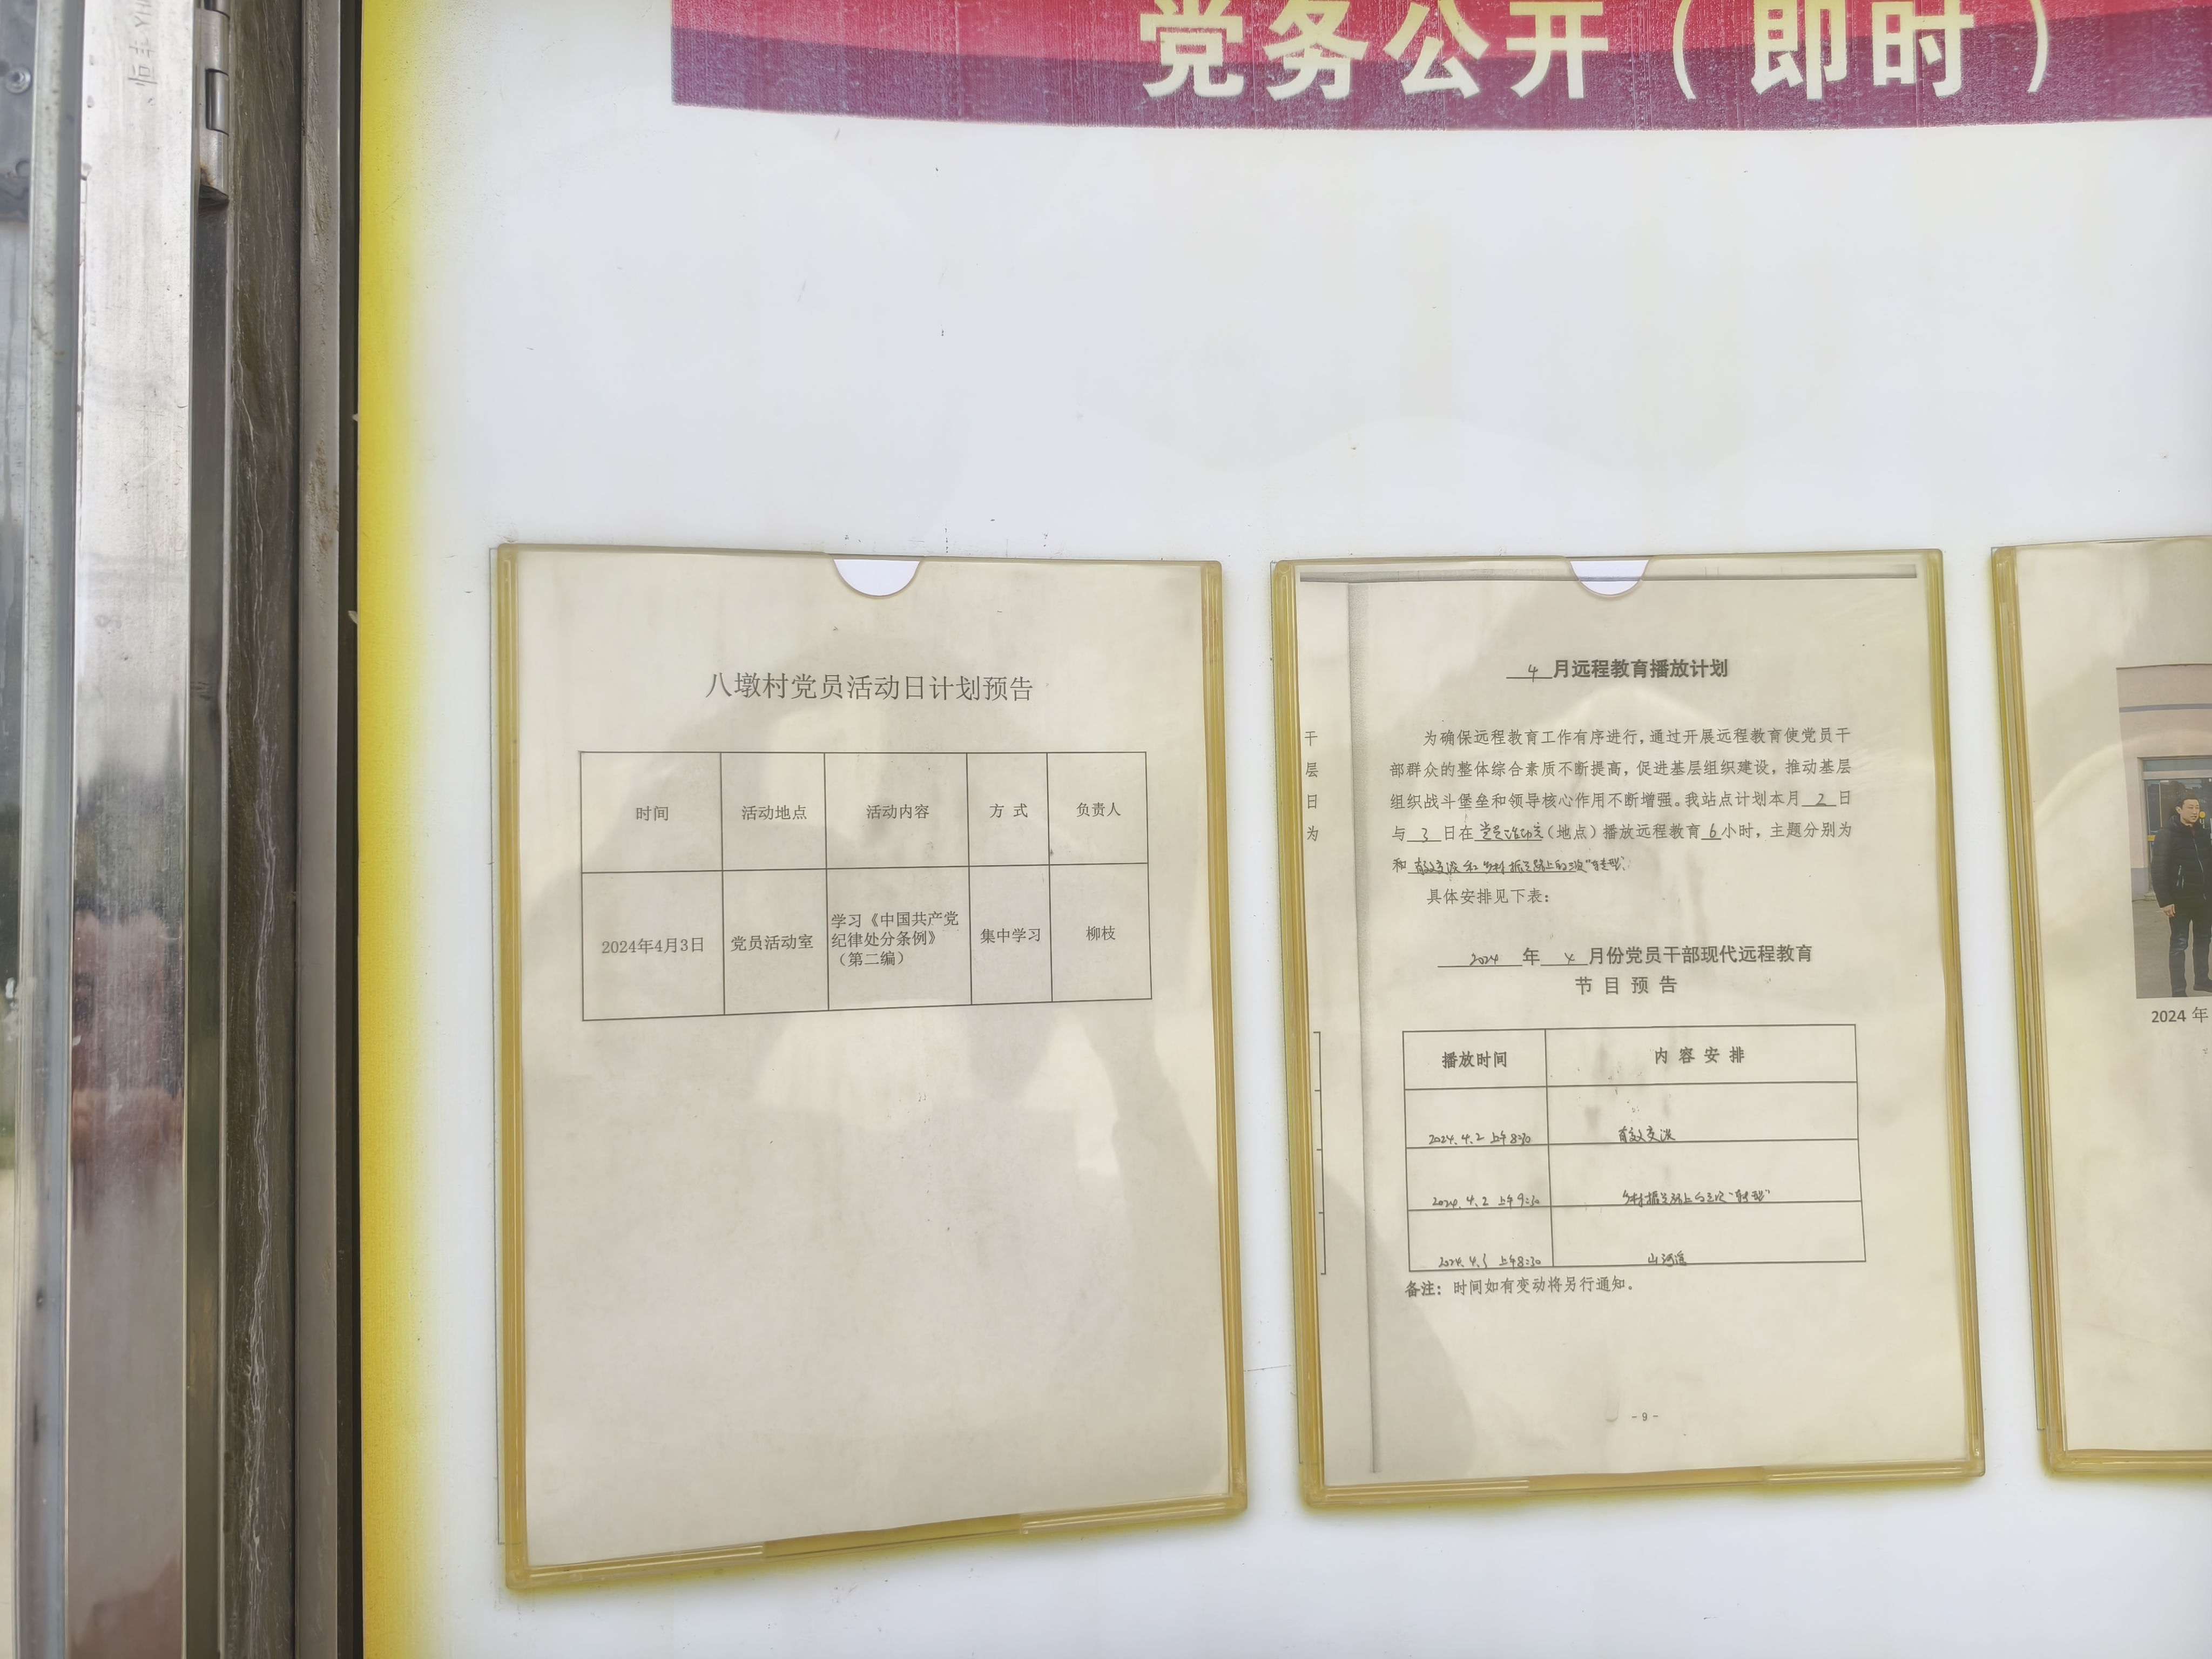 党务公开（即时）
八墩村党员活动日计划预告
时间 活动地点 活动内容 方 式 负责人
2024年4月3日 党员活动室 学习《中国共产党
纪律处分条例》
（第二编） 集中学习 柳枝
干
层
日
为
4 月远程教育播放计划
为确保远程教育工作有序进行，通过开展远程教育使党员干
部群众的整体综合素质不断提高，促进基层组织建设，推动基层
组织战斗堡垒和领导核心作用不断增强。我站点计划本月 2 日
与 3 日在党员活动室（地点）播放远程教育 6 小时，主题分别为
和 有效交谈 和 "乡村振兴路上的三次"转型"
具体安排见下表：
2024 年 4 月份党员干部现代远程教育
节 目 预 告
播放时间 内 容 安 排
2024.4.2 上午8:30 有效交谈
2024.4.2 上午9:30 乡村振兴路上的三次"转型"
2024.4.3 上午8:30 山河
备注：时间如有变动将另行通知。
- 9 -
2024 年